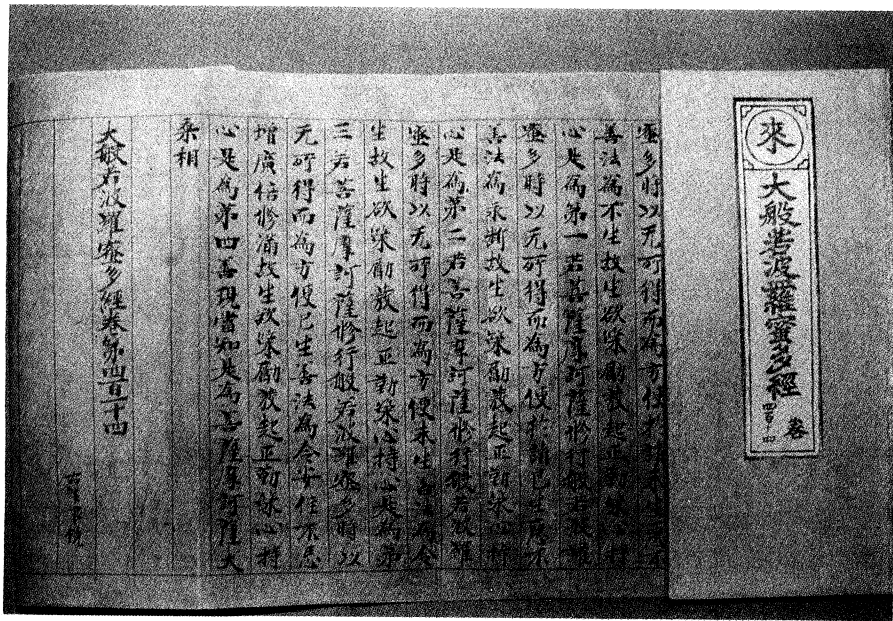 來
大般若波羅蜜多經 卷
蜜多時以无所得而為方便於諸未生
善法為不生故生欲策勵發起正勤策心持
心是為第一若菩薩摩訶薩修行般若波羅
蜜多時以无所得而為方便於諸已生惡不
善法為永斷故生欲策勵發起正勤策心持
心是為第二若菩薩摩訶薩修行般若波羅
蜜多時以无所得而為方便未生善法為令
生故生欲策勵發起正勤策心持心是為第
三若菩薩摩訶薩修行般若波羅蜜多時以
无所得而為方便已生善法為令安住不忘
增廣倍修滿故生欲策勵發起正勤策心持
心是為第四善現當知是為菩薩摩訶薩大
乘相
大般若波羅蜜多經卷第四百十四